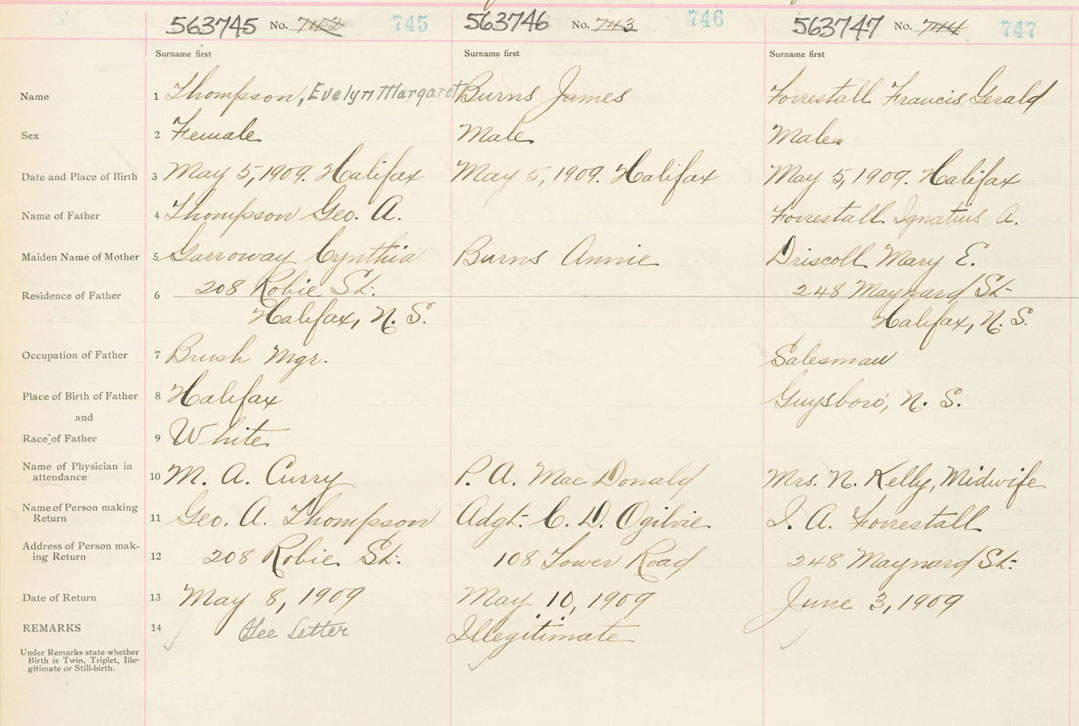 563745 No. 742 745 563746 No. 743 746 563747 No. 744 747
Surname first Surname first Surname first
Name 1 Thompson, Evelyn Margaret Burns James Forrestall Francis Gerald
Sex 2 Female Male Male
Date and Place of Birth 3 May 5, 1909. Halifax May 5, 1909. Halifax May 5, 1909. Halifax
Name of Father 4 Thompson Geo. A. Forrestall Ignatius A.
Maiden Name of Mother 5 Garroway Cynthia Burns Annie Driscoll Mary E.
Residence of Father 6 208 Robie St. 248 Maynard St.
Halifax, N. S. Halifax, N. S.
Occupation of Father 7 Brush Mgr. Salesman
Place of Birth of Father 8 Halifax Guysboro, N. S.
and
Race of Father 9 White
Name of Physician in
attendance 10 M. A. Curry P. A. MacDonald Mrs. N. Kelly, Midwife
Name of Person making
Return 11 Geo. A. Thompson Adgt. C. D. Ogilvie I. A. Forrestall
Address of Person mak-
ing Return 12 208 Robie St. 108 Tower Road 248 Maynard St.
Date of Return 13 May 8, 1909 May 10, 1909 June 3, 1909
REMARKS 14 See Letter Illegitimate
Under Remarks state whether
Birth is Twin, Triplet, Ille-
gitimate or Still-birth.